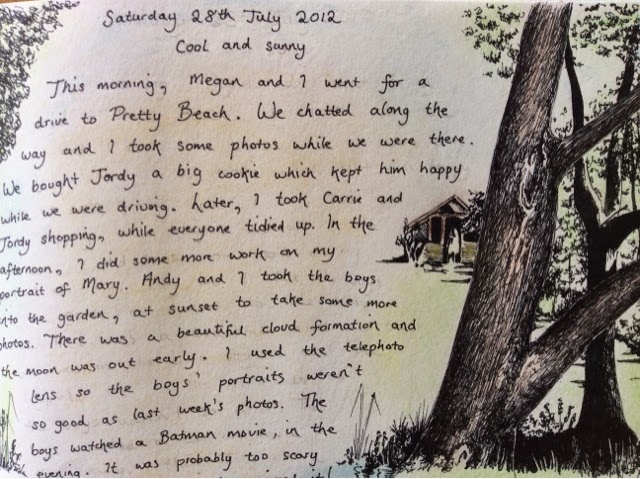 Saturday 28th July 2012
Cool and sunny
This morning, Megan and I went for a
drive to Pretty Beach. We chatted along the
way and I took some photos while we were there.
We bought Jordy a big cookie which kept him happy
while we were driving. Later, I took Carrie and
Jordy shopping, while everyone tidied up. In the
afternoon, I did some more work on my
portrait of Mary. Andy and I took the boys
into the garden, at sunset to take some more
photos. There was a beautiful cloud formation and
the moon was out early. I used the telephoto
lens so the boys' portraits weren't
so good as last week's photos. The
boys watched a Batman movie, in the
evening. It was probably too scary